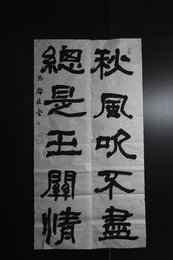 秋風吹不盡
總是玉關情